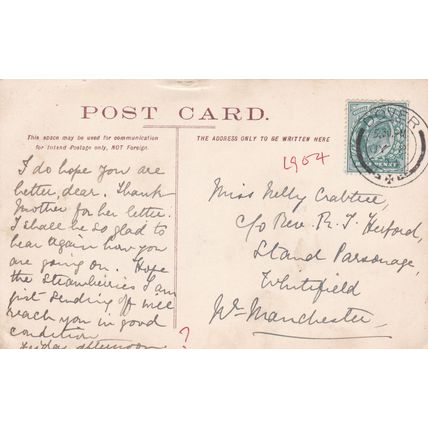 POST CARD.
This space may be used for communication
for Inland Postage only, NOT Foreign.
THE ADDRESS ONLY TO BE WRITTEN HERE
1904
I do hope you are
better, dear. Thank
Mother for her letter.
I shall be so glad to
hear again how you
are going on. Hope
the strawberries I am
just sending off will
reach you in good
condition
Friday afternoon
?
Miss Nelly Crabtree,
c/o Rev. R. T. Herford,
Stand Parsonage,
Whitefield
Nr. Manchester